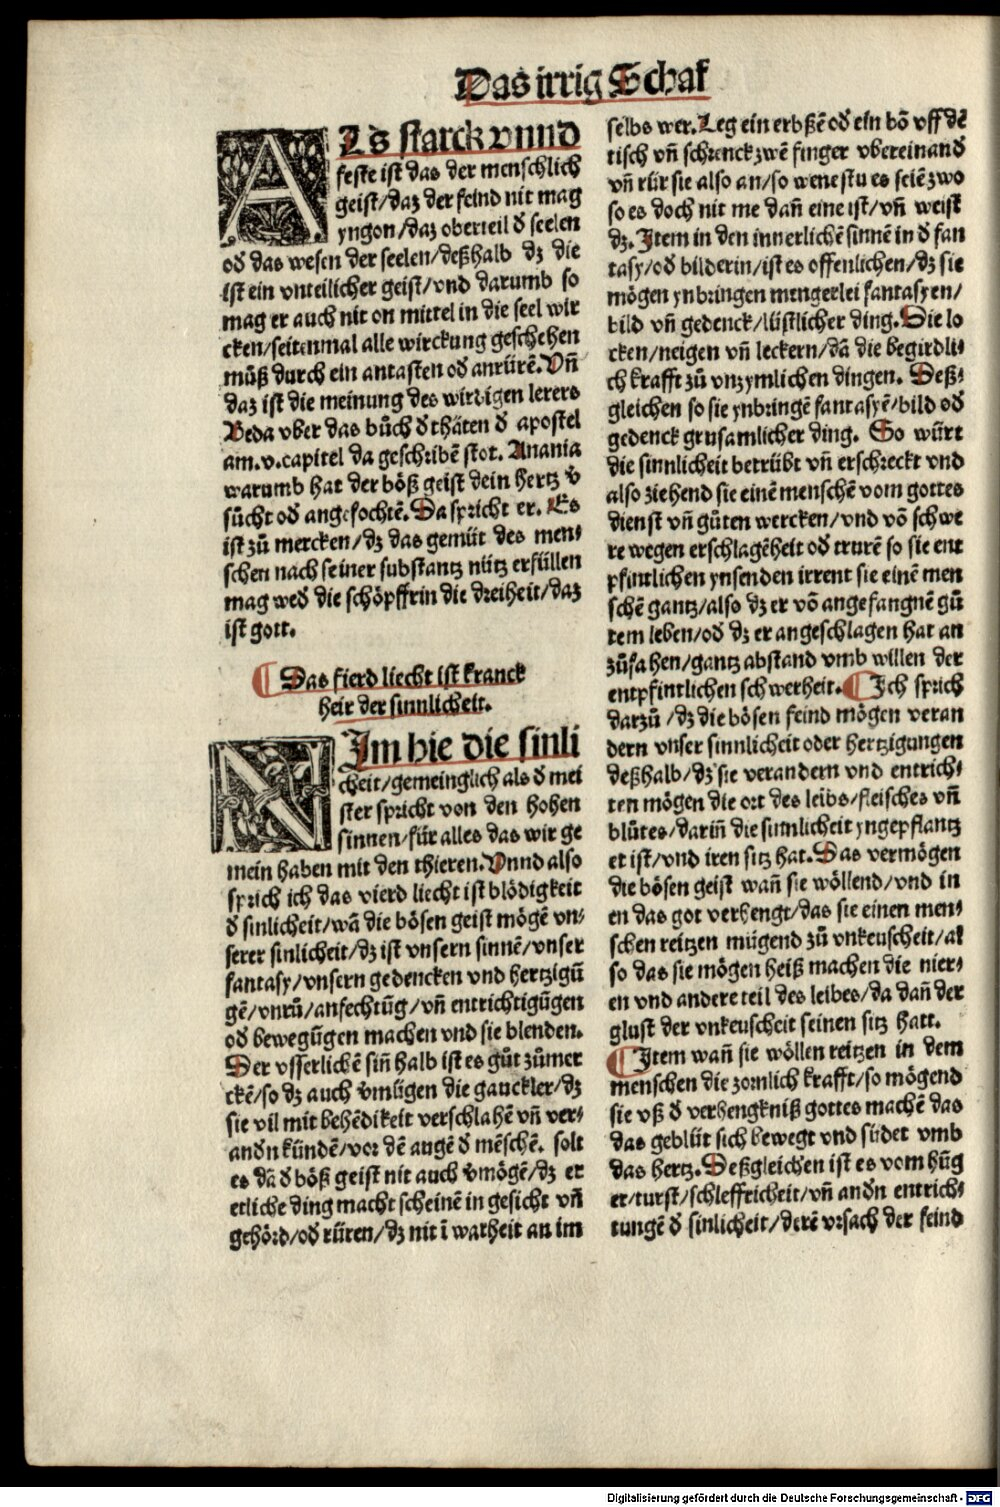 Das irrig Schaf
ALs starck vnnd
feste ist das der menschlich
geist/daz der feind nit mag
yngon/daz oberteil d̉ seelen
od̉ das wesen der seelen/deßhalb dz die
ist ein vnteilicher geist/vnd darumb so
mag er auch nit on mittel in die seel wir
cken/seitenmal alle wirckung geschehen
můß durch ein antasten od̉ anrürē. Vñ
daz ist die meinung des wirdigen lerers
Beda vber das bůch d̉ thäten d̉ apostel
am.v.capitel da geschribē stot. Anania
warumb hat der böß geist dein hertz v̉
sůcht od̉ angefochtē. Da spricht er. Es
ist zů mercken/dz das gemüt des men⸗
schen nach seiner substantz nütz erfüllen
mag wed̉ die schöpffrin die dreiheit/daz
ist gott.
¶ Das fierd liecht ist kranck
heit der sinnlicheit.
NIm hie die sinli
cheit/gemeinglich als d̉ mei
ster spricht von den hohen
sinnen/für alles das wir ge
mein haben mit den thieren. Vnnd also
sprich ich das vierd liecht ist blödigkeit
d̉ sinlicheit/wā die bösen geist mögē vn⸗
serer sinlicheit/dz ist vnsern sinnē/vnser
fantasy/vnsern gedencken vnd hertzigū
gē/vnrů/anfechtūg/vñ entrichtigūgen
od̉ bewegūgen machen vnd sie blenden.
Der vsserlichē siñ halb ist es gůt zůmer
ckē/so dz auch v̉mügen die gauckler/dz
sie vil mit behēdikeit verschlahē vñ ver⸗
andn̉ kündē/vor dē augē d̉ mēschē. solt
es dā d̉ böß geist nit auch v̉mögē/dz er
etliche ding macht scheinē in gesicht vñ
gehörd/od̉ rüren/dz nit ī warheit an im
selbs wer. Leg ein erbßē od̉ ein bō vff dē
tisch vñ schrenck zwē finger vbereinand̉
vñ rür sie also an/so wenestu es seiē zwo
so es doch nit me dañ eine ist/vñ weist
dz. Item in den innerlichē sinnē in d̉ fan
tasy/od̉ bilderin/ist es offenlichen/dz sie
mögen ynbringen mengerlei fantasyen/
bild vñ gedenck/lüstlicher ding. Die lo
cken/neigen vñ leckern/dā die begirdli⸗
ch krafft zů vnzymlichen dingen. Deß⸗
gleichen so sie ynbringē fantasyē/bild od̉
gedenck grusamlicher ding. So würt
die sinnlicheit betrübt vñ erschreckt vnd
also ziehend sie einē menschē vom gottes
dienst vñ gůten wercken/vnd vō schwe
re wegen erschlagēheit od̉ trurē so sie ent
pfintlichen ynsenden irrent sie einē men
schē gantz/also dz er vō angefangnē gů
tem leben/od̉ dz er angeschlagen hat an
zůfahen/gantz abstand vmb willen der
entpfintlichen schwerheit. ¶ Ich sprich
darzů/dz die bösen feind mögen veran
dern vnser sinnlicheit oder hertzigungen
deßhalb/dz sie verandern vnd entrich⸗
ten mögen die ort des leibs/fleisches vñ
blůtes/dariñ die sinnlicheit yngepflantz
et ist/vnd iren sitz hat. Das vermögen
die bösen geist wañ sie wöllend/vnd in
en das got verhengt/das sie einen men⸗
schen reitzen mügend zů vnkeuscheit/al
so das sie mögen heiß machen die nier⸗
en vnd andere teil des leibes/da dañ der
glust der vnkeuscheit seinen sitz hatt.
¶ Item wañ sie wöllen reitzen in dem
menschen die zornlich krafft/so mögend
sie vß d̉ verhengkniß gottes machē das
das geblüt sich bewegt vnd südet vmb
das hertz. Deßgleichen ist es vom hūg
er/turst/schleffricheit/vñ andn̉ entrich⸗
tungē d̉ sinlicheit/derē vrsach der feind
Digitalisierung gefördert durch die Deutsche Forschungsgemeinschaft - DFG